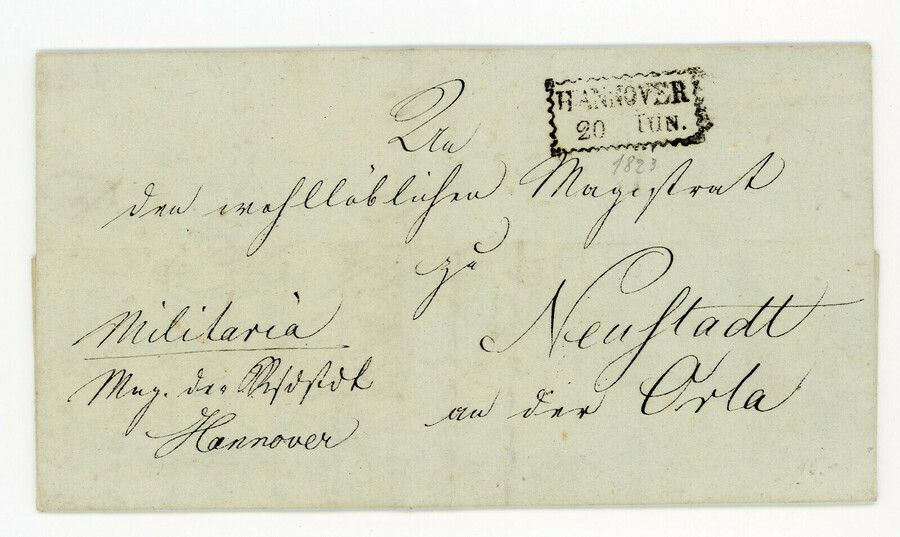 HANNOVER
20 IUN.
1823
An
den wohllöblichen Magistrat
zu
Neustadt
an der Orla
Militaria
Mag. der
Hannover